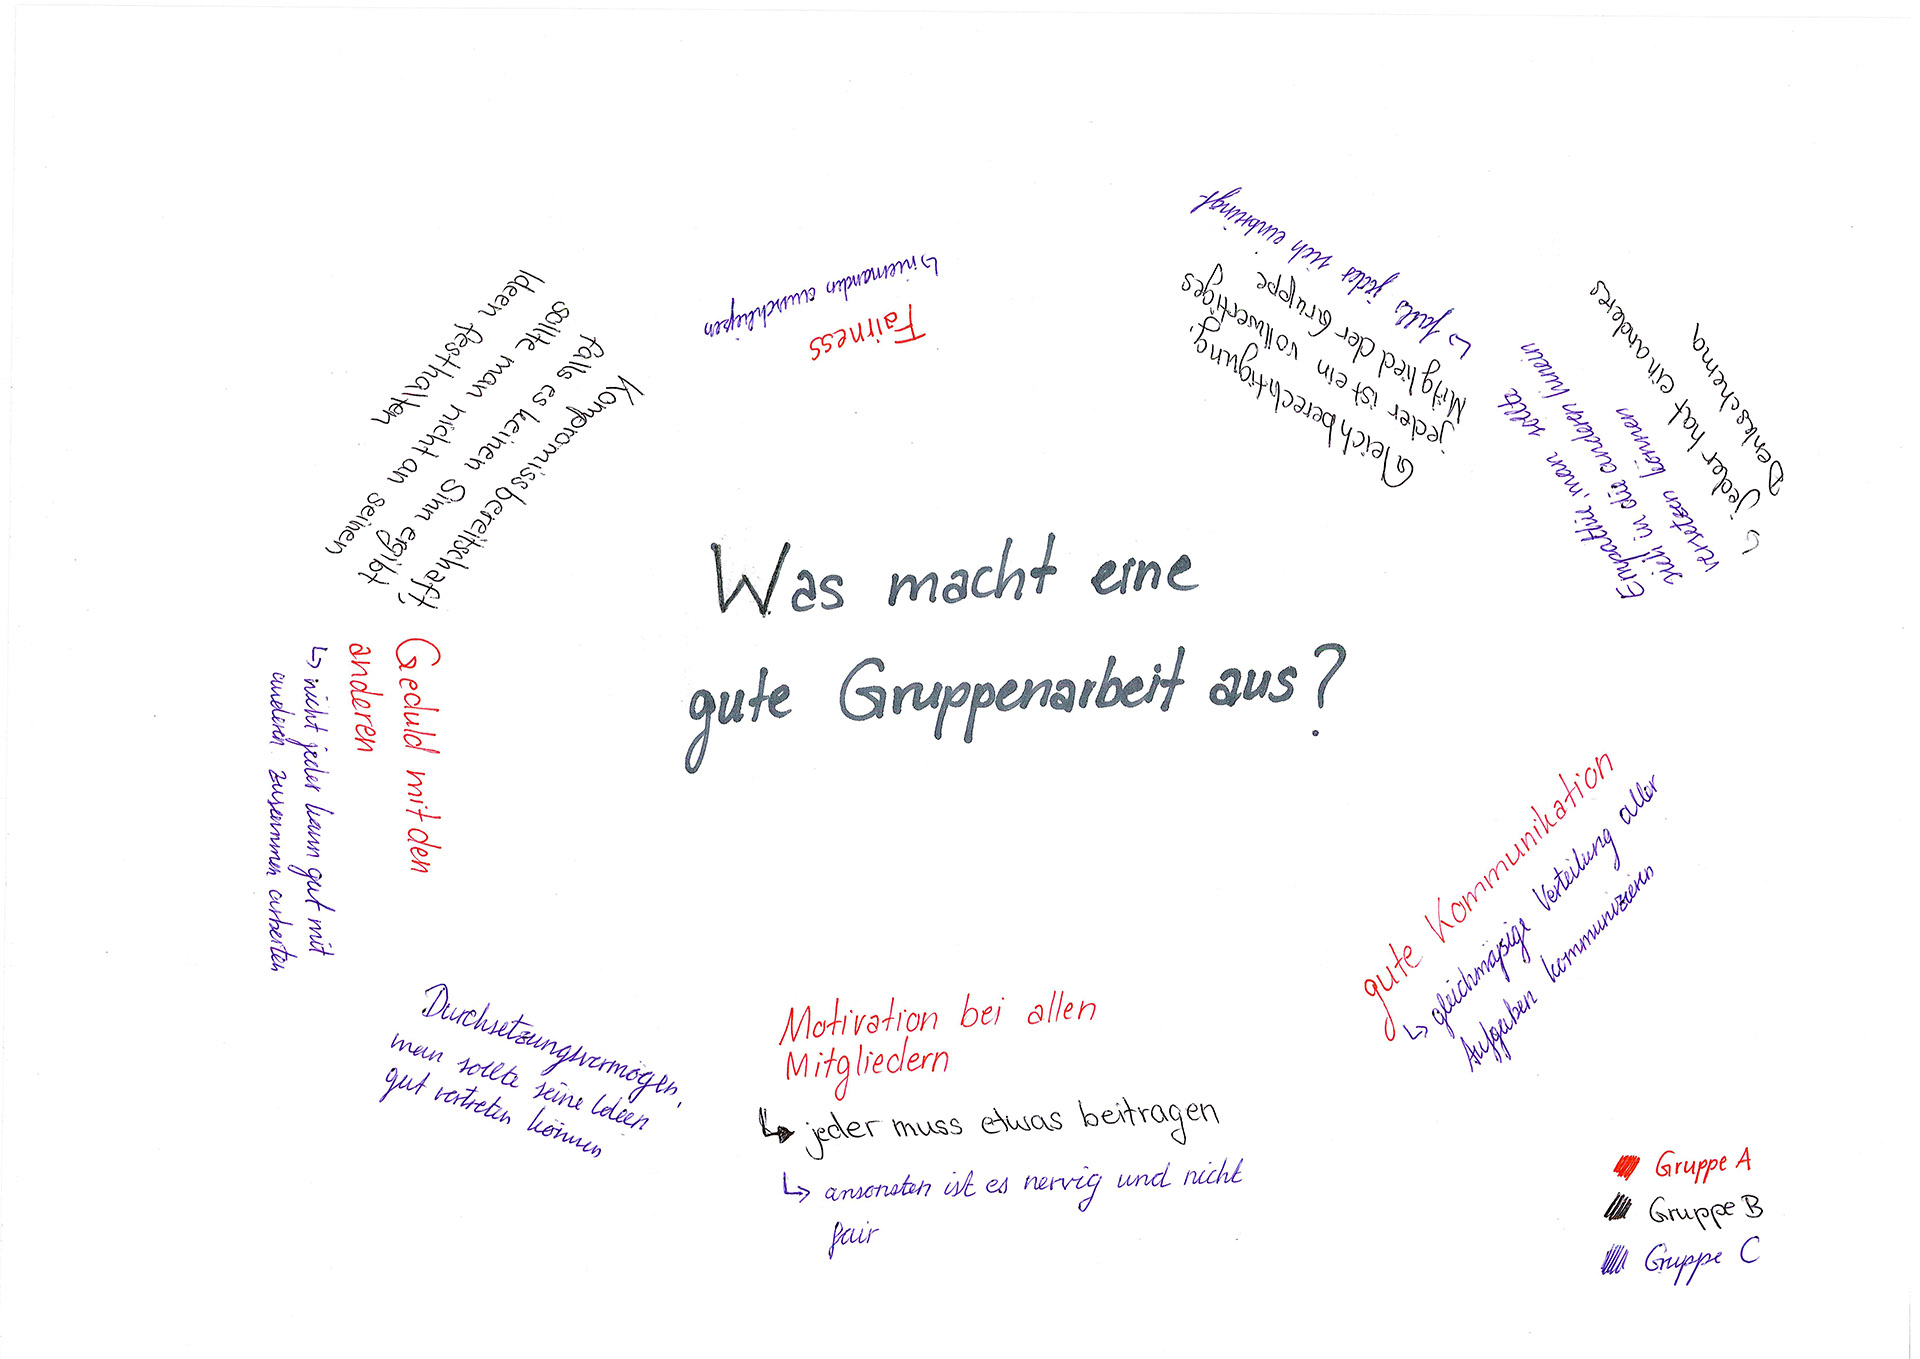 Was macht eine
gute Gruppenarbeit aus?
Fairness
↳ niemanden ausschließen
Gleichberechtigung,
jeder ist ein vollwertiges
Mitglied der Gruppe
↳ falls jedes sich einbringt
Empathie, man sollte
sich in die anderen hinein
versetzen können
↳ jeder hat ein anderes
Denkschema
gute Kommunikation
↳ gleichmäßige Verteilung aller
Aufgaben kommunizieren
Motivation bei allen
Mitgliedern
↳ jeder muss etwas beitragen
↳ ansonsten ist es nervig und nicht
fair
Durchsetzungsvermögen,
man sollte seine Ideen
gut vertreten können
Geduld mit den
anderen
↳ nicht jeder kann gut mit
anderen zusammen arbeiten
Kompromissbereitschaft,
falls es keinen Sinn ergibt
sollte man nicht an seinen
Ideen festhalten
Gruppe A
Gruppe B
Gruppe C